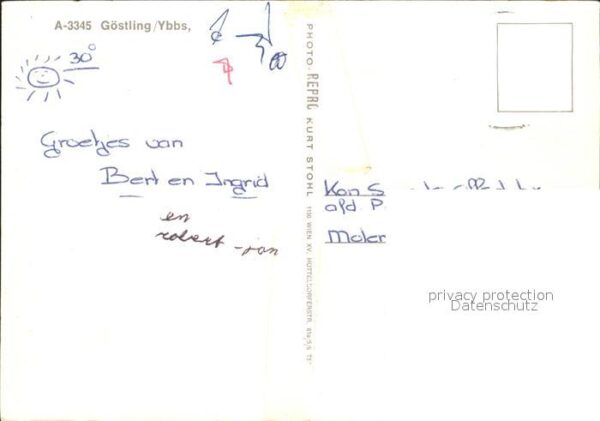 A-3345 Göstling/Ybbs,
30°
Groetjes van
Bert en Ingrid
en
robert-jan
PHOTO-REPRO KURT STOHL
1150 WIEN XV.
Kon S
afd P
Moler
privacy protection
Datenschutz